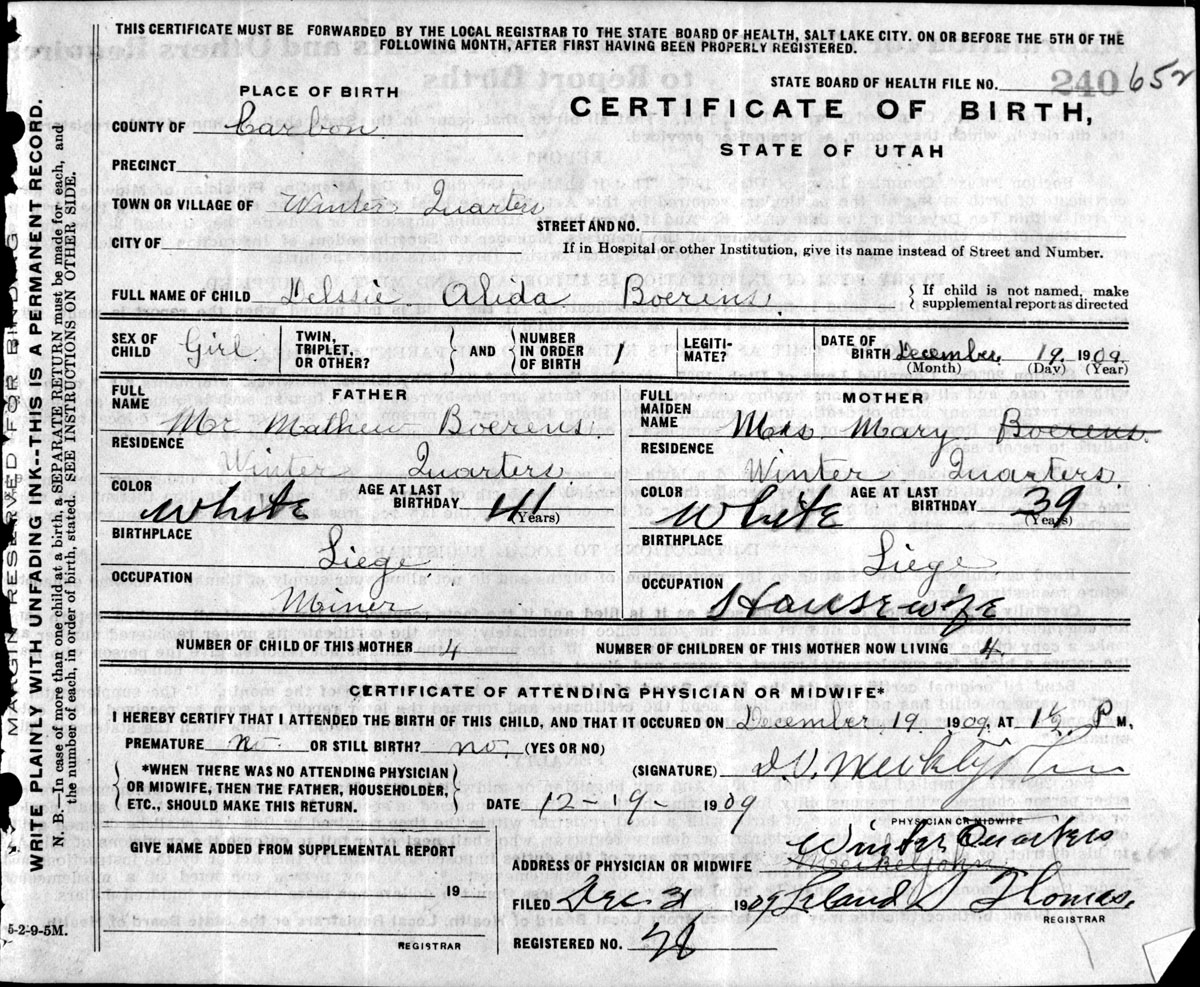 THIS CERTIFICATE MUST BE FORWARDED BY THE LOCAL REGISTRAR TO THE STATE BOARD OF HEALTH, SALT LAKE CITY. ON OR BEFORE THE 5TH OF THE
FOLLOWING MONTH, AFTER FIRST HAVING BEEN PROPERLY REGISTERED.
STATE BOARD OF HEALTH FILE NO. 240 652
PLACE OF BIRTH
CERTIFICATE OF BIRTH,
STATE OF UTAH
COUNTY OF Carbon
PRECINCT
TOWN OR VILLAGE OF Winter Quarters
STREET AND NO.
CITY OF
If in Hospital or other Institution, give its name instead of Street and Number.
FULL NAME OF CHILD Delssie Alida Boerens { If child is not named, make
supplemental report as directed
SEX OF CHILD Girl
TWIN, TRIPLET, OR OTHER? } AND { NUMBER IN ORDER OF BIRTH 1
LEGITI-MATE?
DATE OF BIRTH December 19 1909
(Month) (Day) (Year)
FATHER
FULL NAME Mr Mathew Boerens
RESIDENCE Winter Quarters
COLOR White AGE AT LAST BIRTHDAY 41 (Years)
BIRTHPLACE Liege
OCCUPATION Miner
MOTHER
FULL MAIDEN NAME Mrs Mary Boerens
RESIDENCE Winter Quarters.
COLOR White AGE AT LAST BIRTHDAY 39 (Years)
BIRTHPLACE Liege
OCCUPATION Housewife
NUMBER OF CHILD OF THIS MOTHER 4 NUMBER OF CHILDREN OF THIS MOTHER NOW LIVING 4
CERTIFICATE OF ATTENDING PHYSICIAN OR MIDWIFE*
I HEREBY CERTIFY THAT I ATTENDED THE BIRTH OF THIS CHILD, AND THAT IT OCCURED ON December 19 1909 AT P M,
PREMATURE no OR STILL BIRTH? no (YES OR NO)
{ *WHEN THERE WAS NO ATTENDING PHYSICIAN
OR MIDWIFE, THEN THE FATHER, HOUSEHOLDER,
ETC., SHOULD MAKE THIS RETURN. }
(SIGNATURE)
DATE 12-19- 1909
PHYSICIAN OR MIDWIFE
GIVE NAME ADDED FROM SUPPLEMENTAL REPORT
19
REGISTRAR
Winter Quarters
ADDRESS OF PHYSICIAN OR MIDWIFE Meikeljohn
FILED Dec 31 1909 Leland D Thomas,
REGISTRAR
REGISTERED NO.
5-2-9-5M.
MARGIN RESERVED FOR BINDING
WRITE PLAINLY WITH UNFADING INK--THIS IS A PERMANENT RECORD.
N. B.—In case of more than one child at a birth, a SEPARATE RETURN must be made for each, and
the number of each, in order of birth, stated. SEE INSTRUCTIONS ON OTHER SIDE.